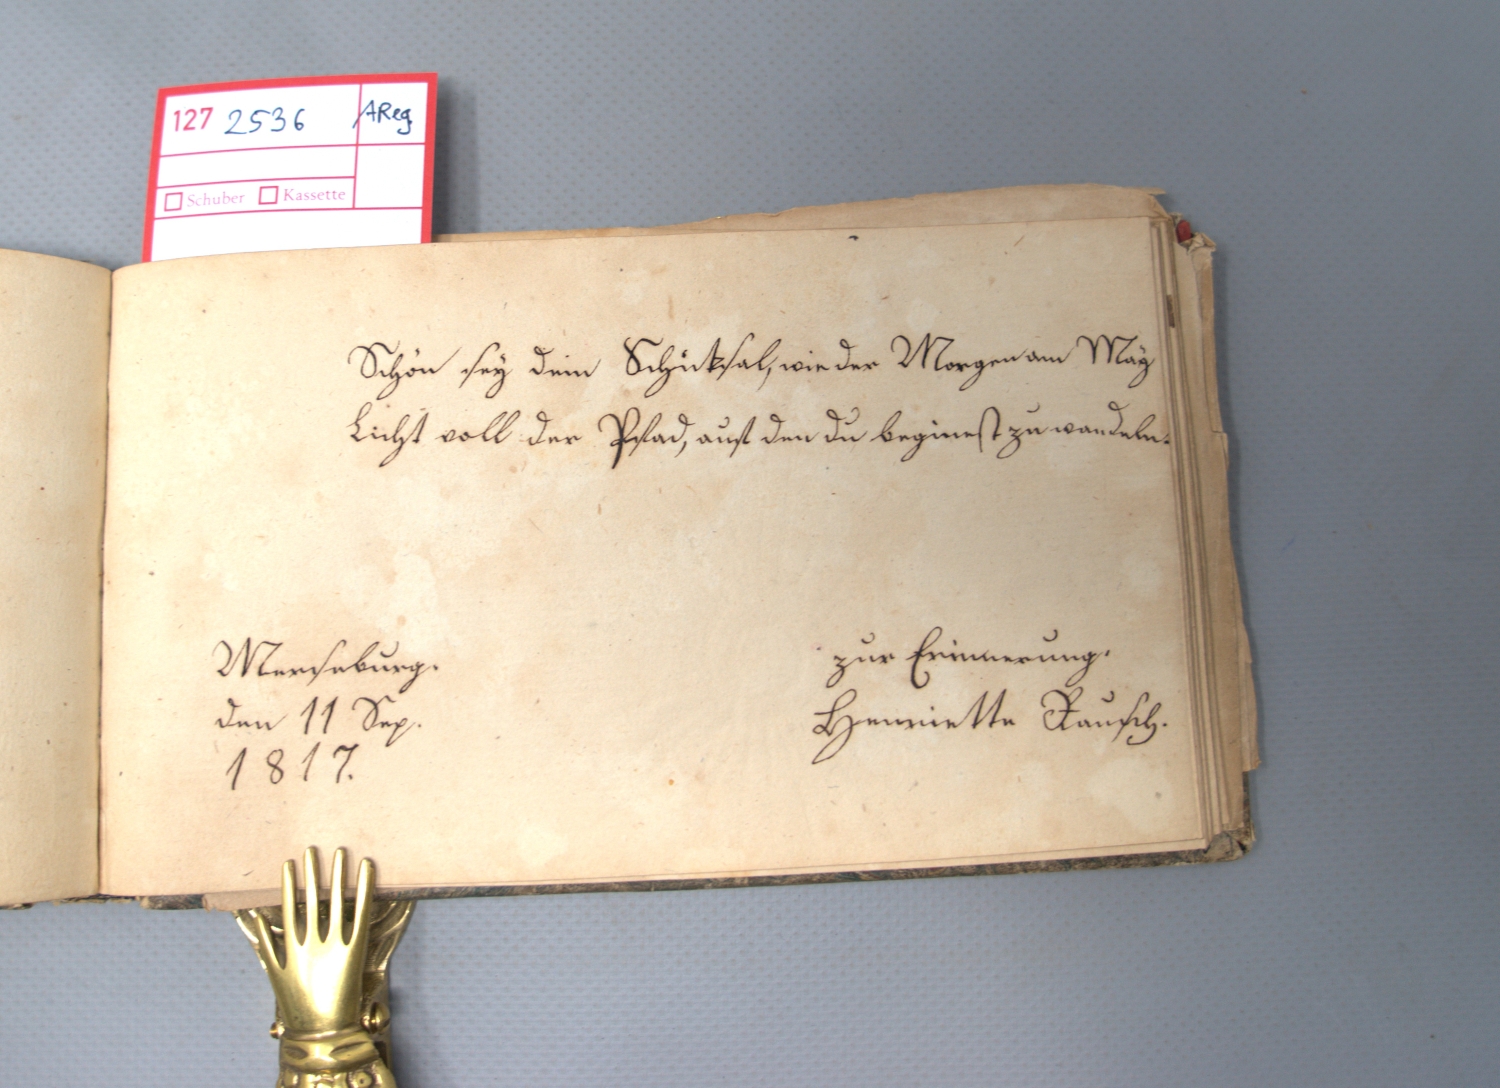 127 2536 AReg
Schuber Kassette
Schön sey dein Schicksal, wie der Morgen am May
Licht voll der Pfad, auf den du beginest zu wandeln.
Merseburg.
den 11 Sep.
1817.
zur Erinnerung.
Henriette Rausch.